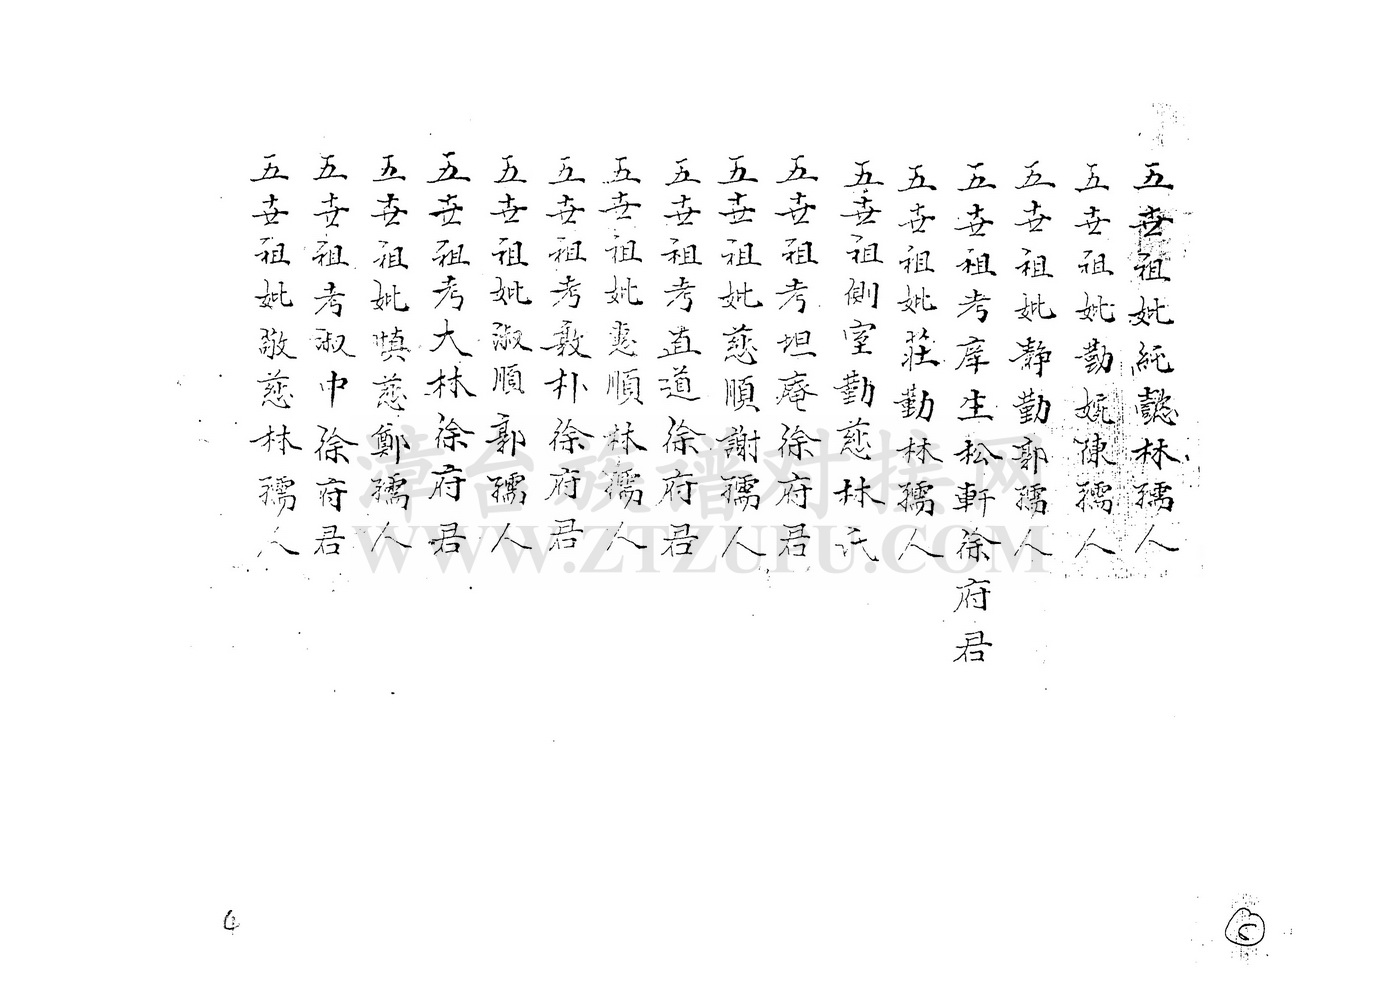 五世祖妣純懿林孺人
五世祖妣勤婉陳孺人
五世祖妣靜勤郭孺人
五世祖考庠生松軒徐府君
五世祖妣莊勤林孺人
五世祖側室勤慈林氏
五世祖考坦庵徐府君
五世祖妣慈順謝孺人
五世祖考直道徐府君
五世祖妣惠順林孺人
五世祖考敦朴徐府君
五世祖妣淑順郭孺人
五世祖考大林徐府君
五世祖妣慎慈鄭孺人
五世祖考淑中徐府君
五世祖妣敬慈林孺人
漳台族谱对接网
WWW.ZTZUPU.COM
6
5